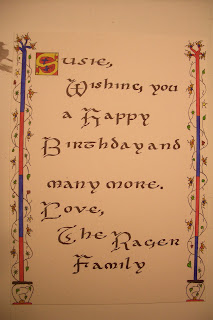 Susie,
Wishing you
a Happy
Birthday and
many more.
Love,
The Rager
Family